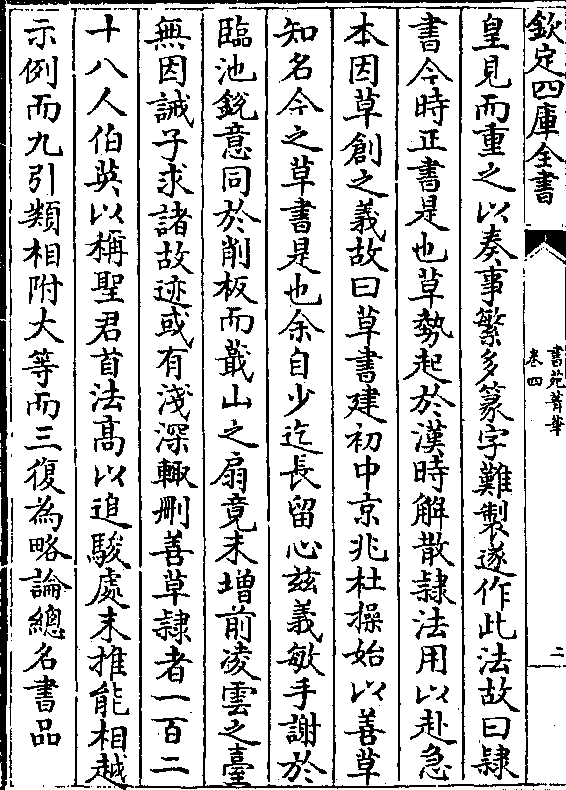 欽定四庫全書
書苑菁華
卷四
二
皇見而重之以奏事繁多篆字難製遂作此法故曰隷
書今時正書是也草勢起於漢時解散隷法用以赴急
本因草創之義故曰草書建初中京兆杜操始以善草
知名今之草書是也余自少迄長留心兹義敏手謝於
臨池銳意同於削板而蕺山之扇竟未增前凌雲之臺
無因誡子求諸故迹或有淺深輙刪善草隷者一百二
十八人伯英以稱聖君首法髙以追駿處末推能相越
示例而九引類相附大等而三復為略論緫名書品